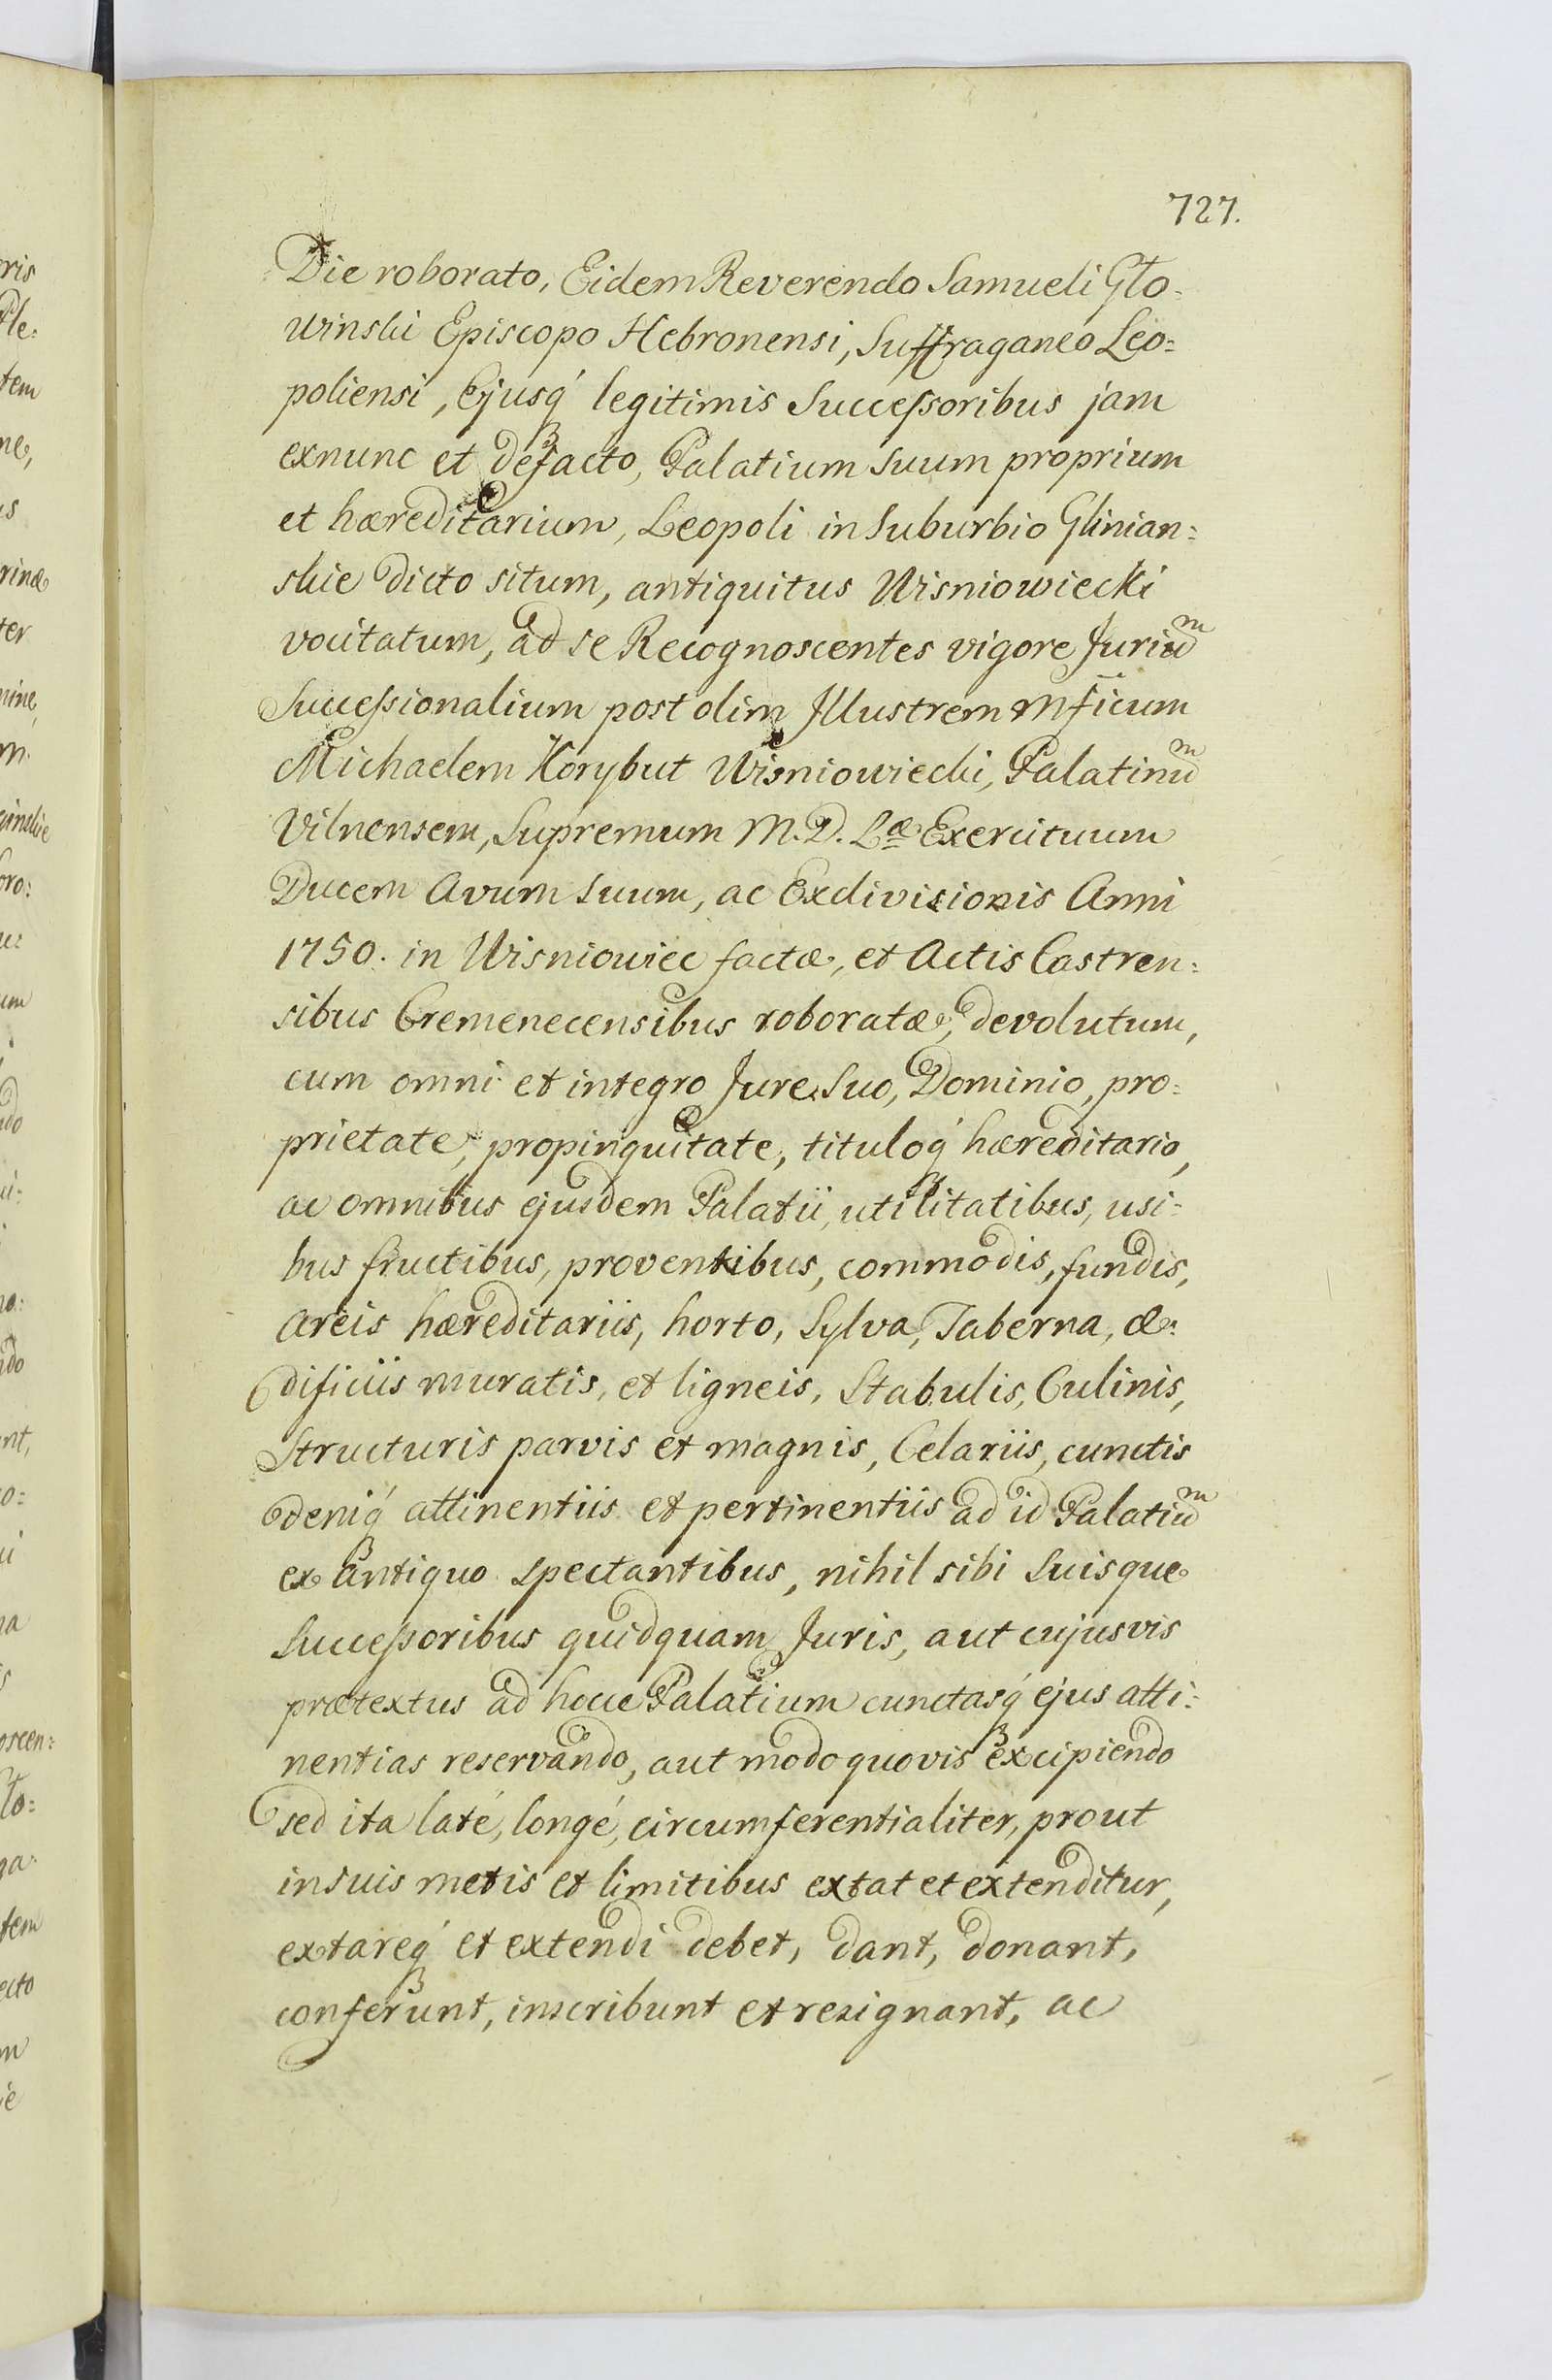 727.
Die roborato, Eidem Reverendo Samueli Glo-
winski Episcopo Hebronensi, Suffraganeo Leo=
poliensi, Ejusq́ legitimis Successoribus jam
exnunc et defacto, Palatium suum proprium
et hæreditarium, Leopoli in Suburbio Glinian=
skie dicto situm, antiquitus Wisniowiecki
vocitatum, ad se Recognoscentes vigore Juriuͫ
Successionalium post olim Jllustrem Mf̄icum
Michaelem Korybut Wisniowiecki, Palatinuͫ
Vilnensem, Supremum M. D. Læ Exercituum
Ducem Avum Suum, ac Exdivisionis Anni
1750. in Wisniowiec factæ, et Actis Castren=
sibus Cremenecensibus roboratæ, devolutum,
cum omni et integro Jure Suo, Dominio, pro=
prietate, propinquitate, tituloq́ hæreditario,
ac omnibus ejusdem Palatii, utilitatibus, usi=
bus fructibus, proventibus, commodis, fundis,
Areis hæreditariis, horto, Sylva, Taberna, æ=
dificiis muratis, et ligneis, Stabulis, Culinis,
Structuris parvis et magnis, Celariis, cunctis
deniq́ attinentiis et pertinentiis ad id Palatiuͫ
ex antiquo spectantibus, nihil sibi Suisque
Successoribus quidquam Juris, aut cujusvis
prætextus ad hocce Palatium cunctasq́ ejus atti=
nentias reservando, aut modo quovis excipiendo
sed ita laté, longé, circumferentialiter, prout
in suis metis et limitibus extat et extenditur,
extareq́ et extendi debet, dant, donant,
conferunt, inscribunt et resignant, ac